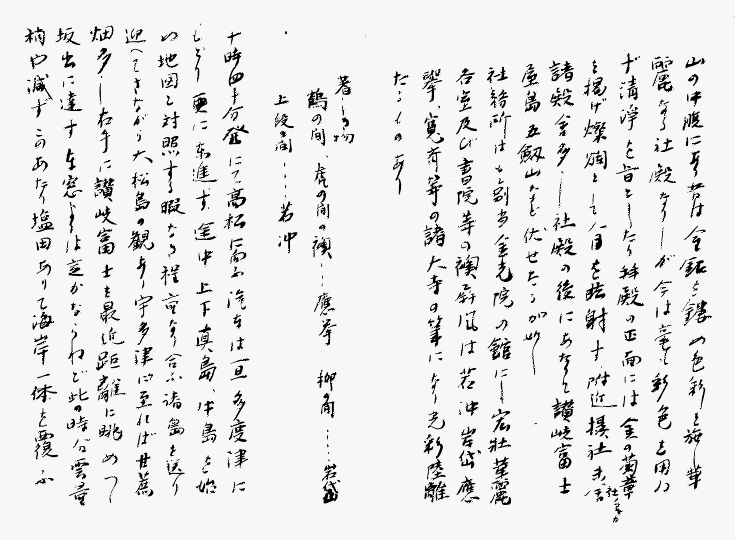 山の中腹にあり昔は金銀を鏤め色彩を施し華
麗なる社殿なりしが今は毫も彩色を用ひ
ず清浄を旨としたり拝殿の正面には金の菊章
を掲げ燦爛として人目を眩射す附近摂社末舎
社ノ字カ
諸殿舎多し社殿の後にあたりて讃岐富士
屋島五剣山など伏せたるが如し
社務所はもと別当金光院の館にし宏壮華麗
各室及び書院等の襖屏風は若冲岸岱應
挙、寛斉等の諸大寺の筆になり光彩陸離
たるものあり
著しき物
鶴の間、虎の間の襖…應挙 柳の間…岩岱
上段の間…若冲
十時四十分発にて高松に向ふ汽車は一旦多度津に
もどり更に東進す、途中上下真島、牛島を始
め地図と対照する暇なき程重なり合ふ諸島を送り
迎へてさながら大松島の観あり宇多津に至れば甘蔗
畑多し右手に讃岐富士を最近距離に眺めつゝ
坂出に達す車窓よりは定かならねど此の時分雲量
稍や減ずこのあたり塩田ありて海岸一体を覆ふ